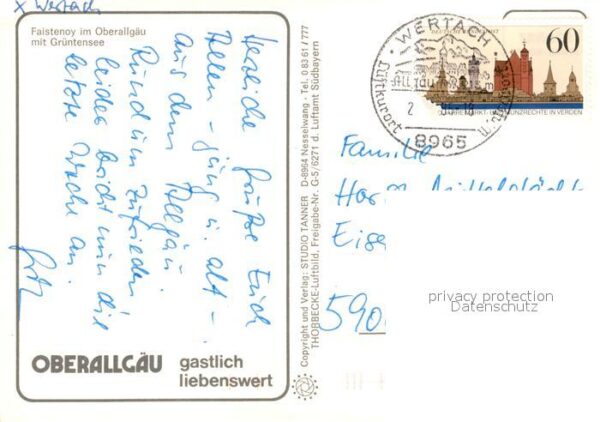 x Wertach
Faistenoy im Oberallgäu
mit Grüntensee
Herzliche Grüße Euch
Allen - jung u. alt -
aus dem Allgäu.
Rundum zufrieden
leider bricht nun die
letzte Woche an.
Fritz
OBERALLGÄU
gastlich
liebenswert
Copyright und Verlag: STUDIO TANNER D-8964 Nesselwang - Tel. 0 83 61 / 777
THORBECKE-Luftbild, Freigabe-Nr. G-5/6271 d. Luftamt Südbayern
WERTACH
Luftkurort
8965
DEUTSCHE BUNDESPOST
60
JAHRE MARKT- UND MÜNZRECHTE IN VERDEN
Familie
590
privacy protection
Datenschutz